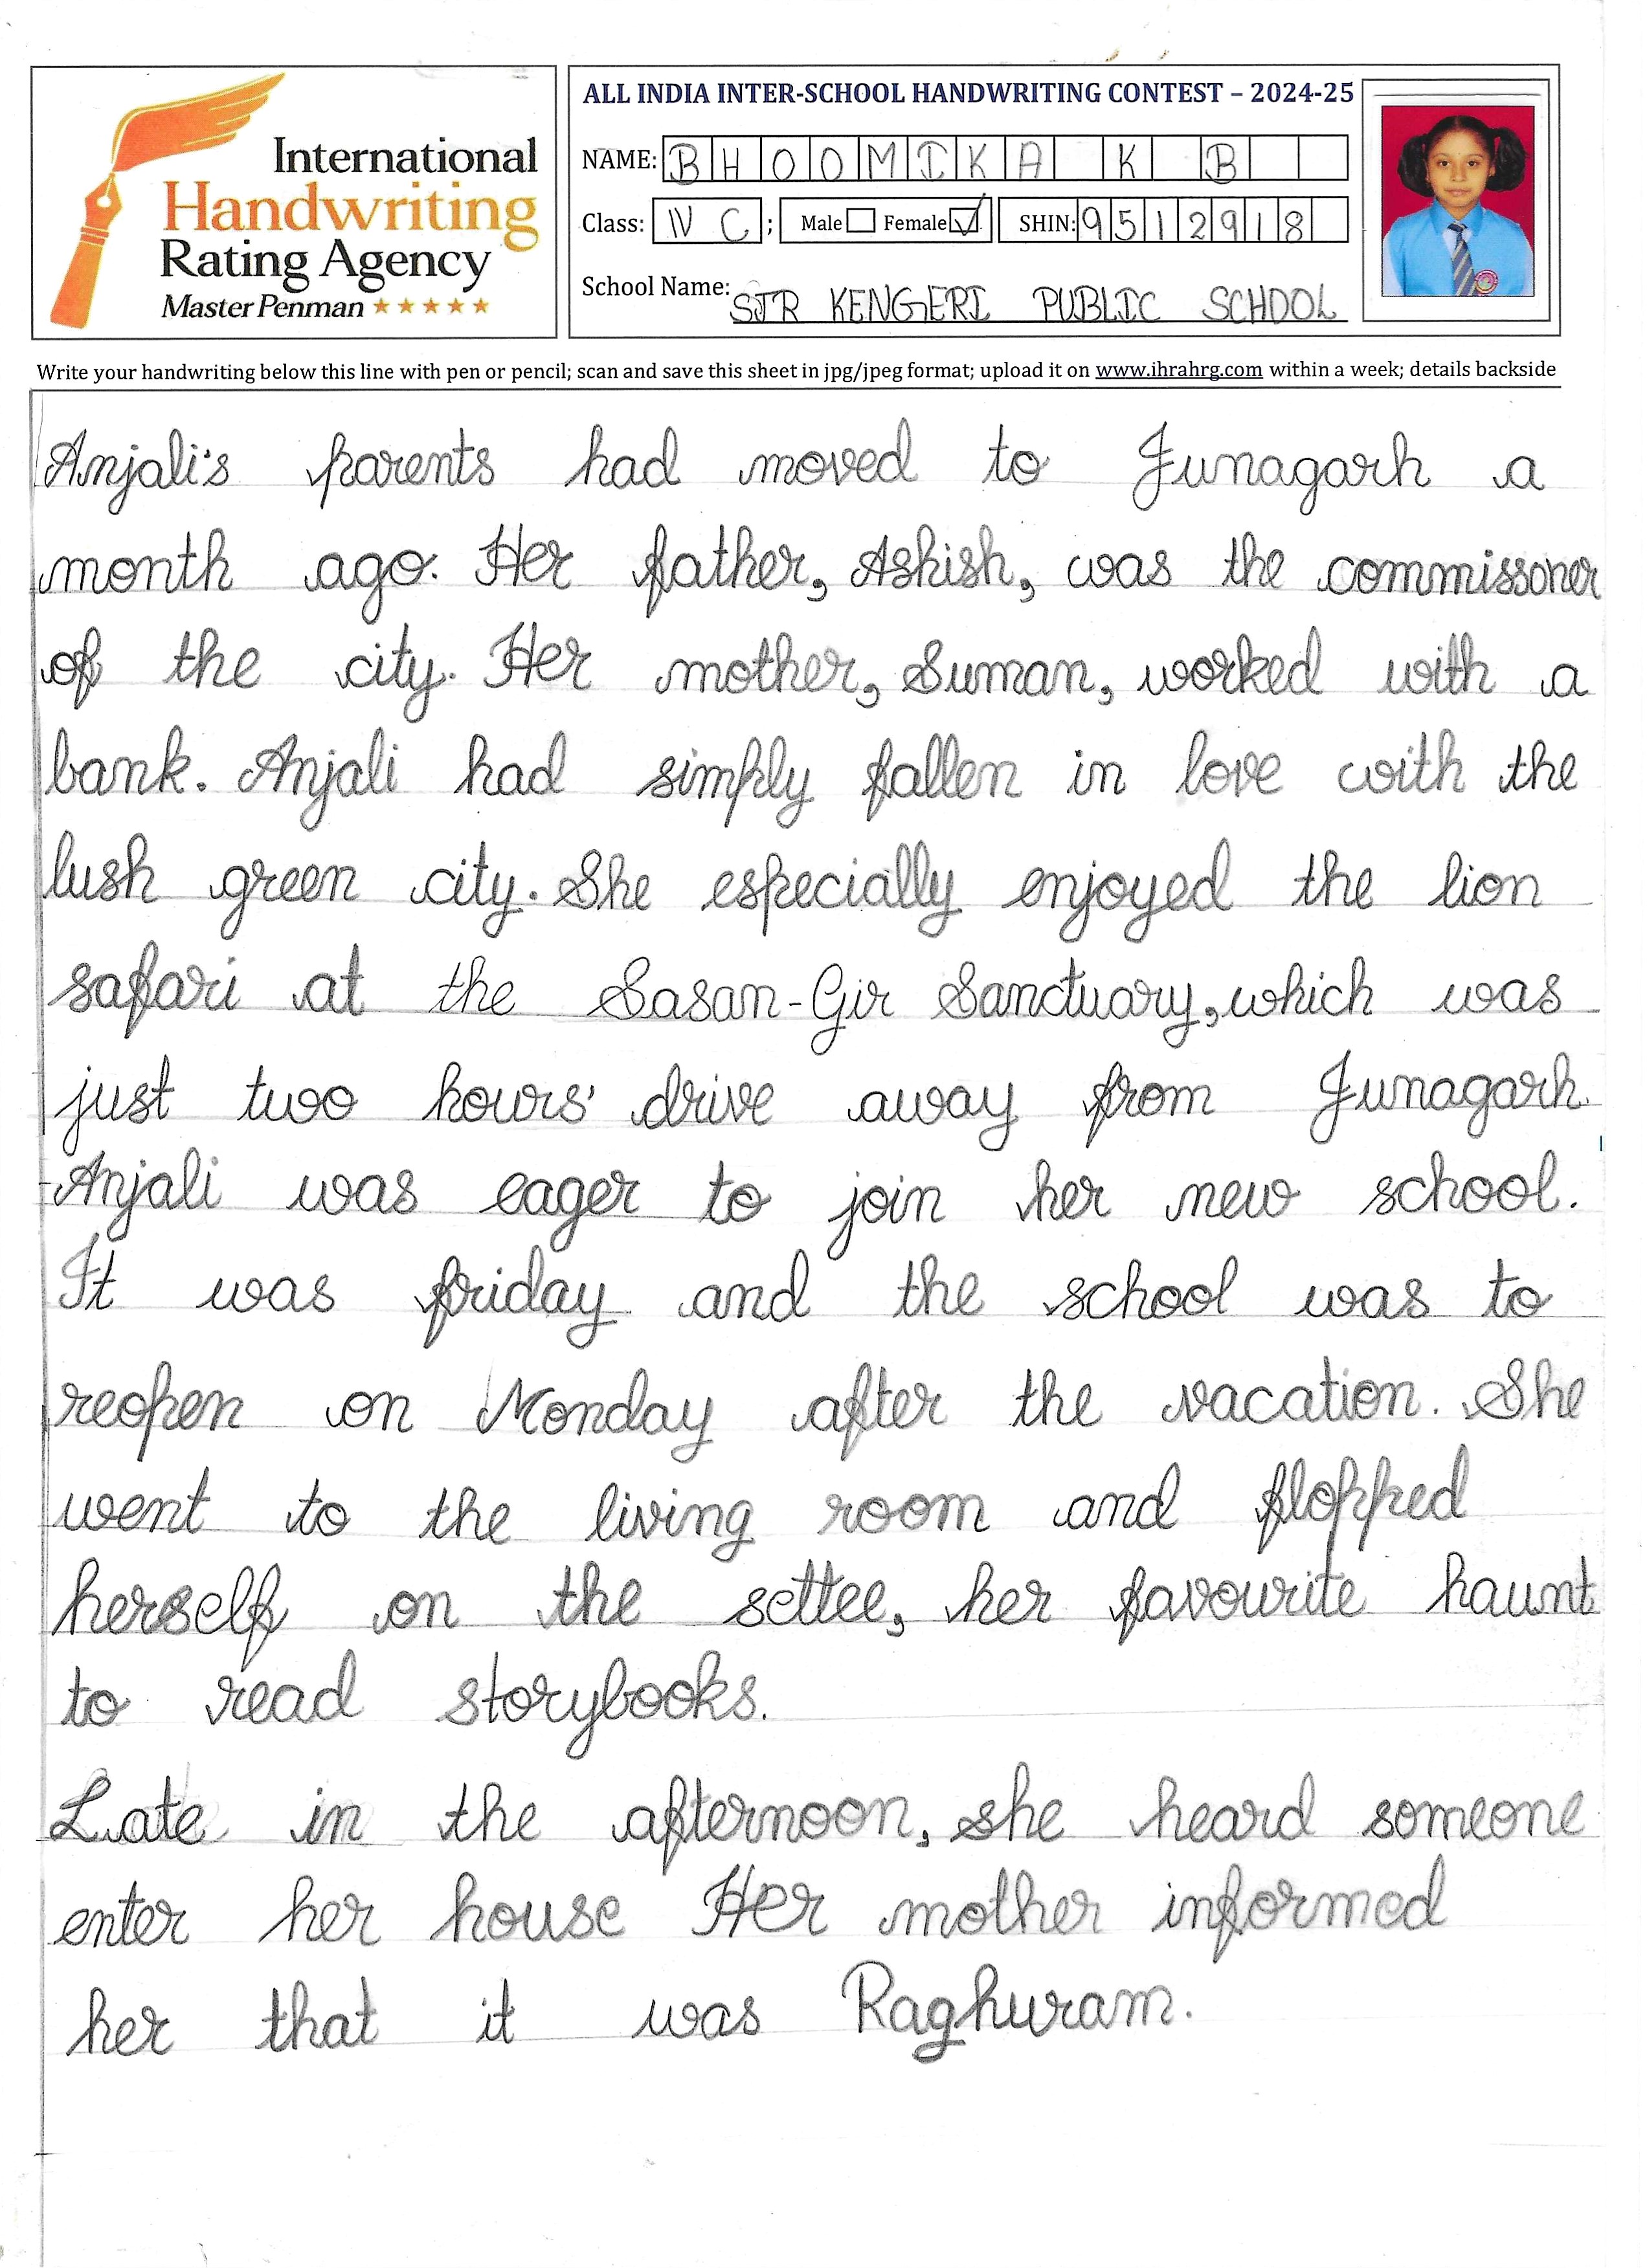 International
Handwriting
Rating Agency
Master Penman
ALL INDIA INTER-SCHOOL HANDWRITING CONTEST – 2024-25
NAME: BHOOMIKA K B
Class: IV C ; Male Female ✓ SHIN: 9512918
School Name: SJR KENGERI PUBLIC SCHOOL
Write your handwriting below this line with pen or pencil; scan and save this sheet in jpg/jpeg format; upload it on www.ihrahrg.com within a week; details backside
Anjali's parents had moved to Junagarh a
month ago. Her father, Ashish, was the commissoner
of the city. Her mother, Suman, worked with a
bank. Anjali had simply fallen in love with the
lush green city. She especially enjoyed the lion
safari at the Sasan-Gir Sanctuary, which was
just two hours' drive away from Junagarh.
Anjali was eager to join her new school.
It was friday and the school was to
reopen on Monday after the vacation. She
went to the living room and flopped
herself on the settee, her favourite haunt
to read storybooks.
Late in the afternoon, she heard someone
enter her house Her mother informed
her that it was Raghuram.